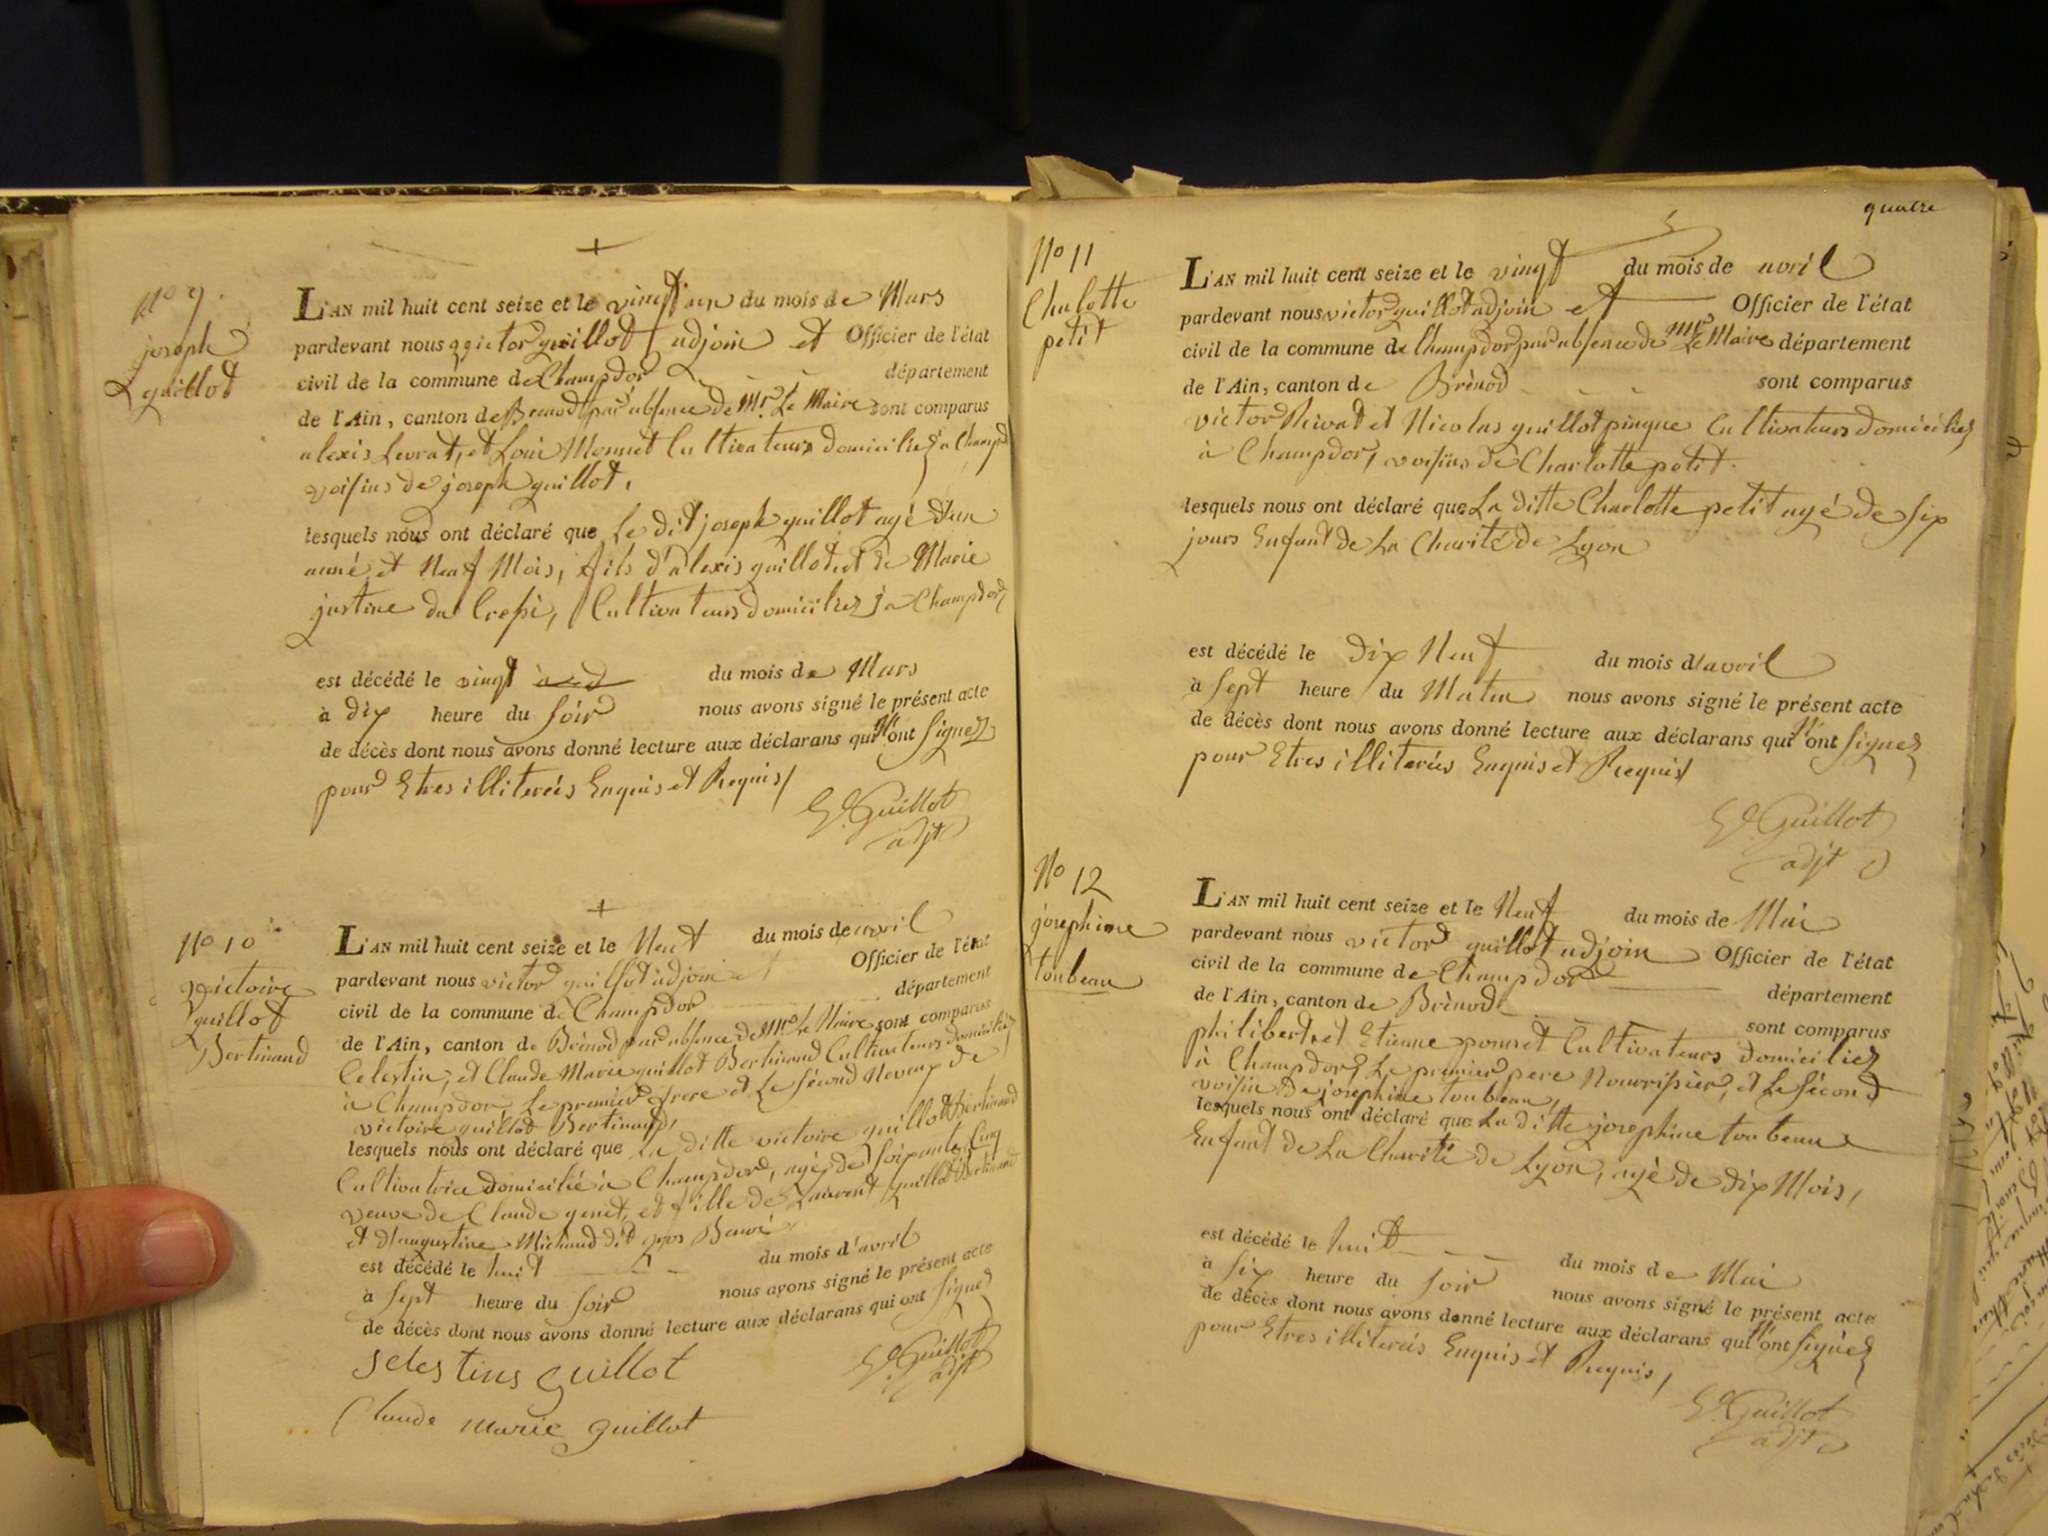 No 9.
joseph
guillot
L'AN mil huit cent seize et le vingt un du mois de Mars
pardevant nous victor guillot adjoin et Officier de l'état
civil de la commune de Champdor département
de l'Ain, canton de Brenod par absence de Mr Le Maire sont comparus
alexis Levrat, et Loui Monnet Cultivateurs domiciliez a Champd
voisins de joseph guillot,
lesquels nous ont déclaré que Le dit joseph guillot agé d'un
anné et Neuf Mois, fils d'alexis guillot et de Marie
justine du Crepi, Cultivateurs domiciliez a Champdor,
est décédé le vingt du mois de Mars
à dix heure du soir nous avons signé le présent acte
de décès dont nous avons donné lecture aux déclarans qui n'ont signez
pour Etres illiterés Enquis et Requis/
Guillot
adjt
No 10
victoire
guillot
Bertinand
L'AN mil huit cent seize et le Neuf du mois de avril
pardevant nous victor guillot adjoin et Officier de l'état
civil de la commune de Champdor département
de l'Ain, canton de Brènod par absence de Mr Le Maire sont comparus
Celestin, et Claude Marie guillot Bertinand Cultivateurs domiciliez
à Champdor, Le premier frere et Le sécond Neveux de
victoire guillot Bertinand,
lesquels nous ont déclaré que La ditte victoire guillot Bertinand
Cultivatrice domicilié à Champdor, agé de soixante Cinq
veuve de Claude genet, et fille de Laurent guillot Bertinand
et d'augustine Michaud dit gros Benoi,
est décédé le huit du mois d'avril
à sept heure du soir nous avons signé le présent acte
de décès dont nous avons donné lecture aux déclarans qui ont signed
Guillot
adjt
selestins guillot
Claude marie guillot
quatre
No 11
Chalotte
petit
L'AN mil huit cent seize et le vingt du mois de avril
pardevant nous victor guillot adjoin et Officier de l'état
civil de la commune de Champdor par absence de Mr Le Maire département
de l'Ain, canton de Brènod sont comparus
victor Rivat et Nicolas guillot pingue Cultivateurs domiciliez
à Champdor, voisins de Charlotte petit.
lesquels nous ont déclaré que La ditte Charlotte petit agé de six
jours Enfant de La Charité de Lyon
est décédé le dix Neuf du mois d'avril
à sept heure du Matin nous avons signé le présent acte
de décès dont nous avons donné lecture aux déclarans qui n'ont signez
pour Etres illiterés Enquis et Requis/
Guillot
adjt
No 12
josephine
toubeau
L'AN mil huit cent seize et le Neuf du mois de Mai
pardevant nous victor guillot adjoin Officier de l'état
civil de la commune de Champdor département
de l'Ain, canton de Brènod sont comparus
philibert et Etienne poncet Cultivateurs domiciliez
à Champdor, Le premier pere Nourrisier, et Le sécond
voisin de josephine toubeau,
lesquels nous ont déclaré que La ditte josephine toubeau
Enfant de La Charité de Lyon, agé de dix Mois,
est décédé le huit du mois de Mai
à six heure du soir nous avons signé le présent acte
de décès dont nous avons donné lecture aux déclarans qui n'ont signez
pour Etres illiterés Enquis et Requis,
Guillot
adjt